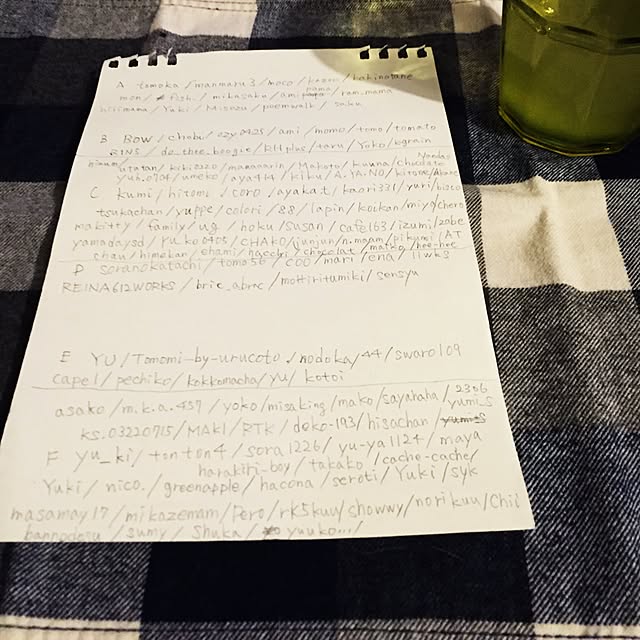 A tomoka / manmaru3 / moco / / kakinotane
mon / fish / mikasako / ami / ram.mama
/ Yuki / Misozu / poemwalk / saku
B Bow / chobi / ozy0425 / ami / momo / tomo / tomato
RINS / do_thee_boogie / RH plus / taru / Yoko / bgrain
utatan / kiki2220 / manaaarin / Makoto / kuuna / chocolate
yuh.0104 / umeko / aya414 / kiku / A.YA.NO / kitorie /
C kumi / hiromi / coro / ayaka.t / kaori331 / yuri / bisco
tsukachan / yuppe / colori / 88 / lapin / koikan / miyo / chero
makitty / family / ug / hoku / Susan / cafe163 / izumi / 20be
yamadaysd / ruko0405 / CHAKO / junjun / n.mgam / pikumi / AT
chau / himekan / ehami / hacchi / chocolat / / hee-hoe
D soranokatachi / tomo56 / coo / mari / ena / liwk3
REINA612WORKS / bric_abrac / mottiritumiki / sensya
E YU / Tomomi-by-urucoto / nodoka / 44 / swaro109
cape1 / pechiko / kokkomacha / yu / kotoi
asako / m.k.a.437 / yoko / misaking / mako / sayahaha / 2306
yumi_s
ks.03220715 / MAKI / RTK / deko-193 / hisachan /
F yu_ki / tonton4 / sora1226 / yu-ya1124 / maya
harakiri-boy / takako / cache-cache /
Yuki / nico. / greenapple / hacona / seroti / Yuki / syk
masamay17 / mikazemam / Pero / rk5kuu / showwy / norikuu / Chii
/ sumy / Shuka / yuuko... /